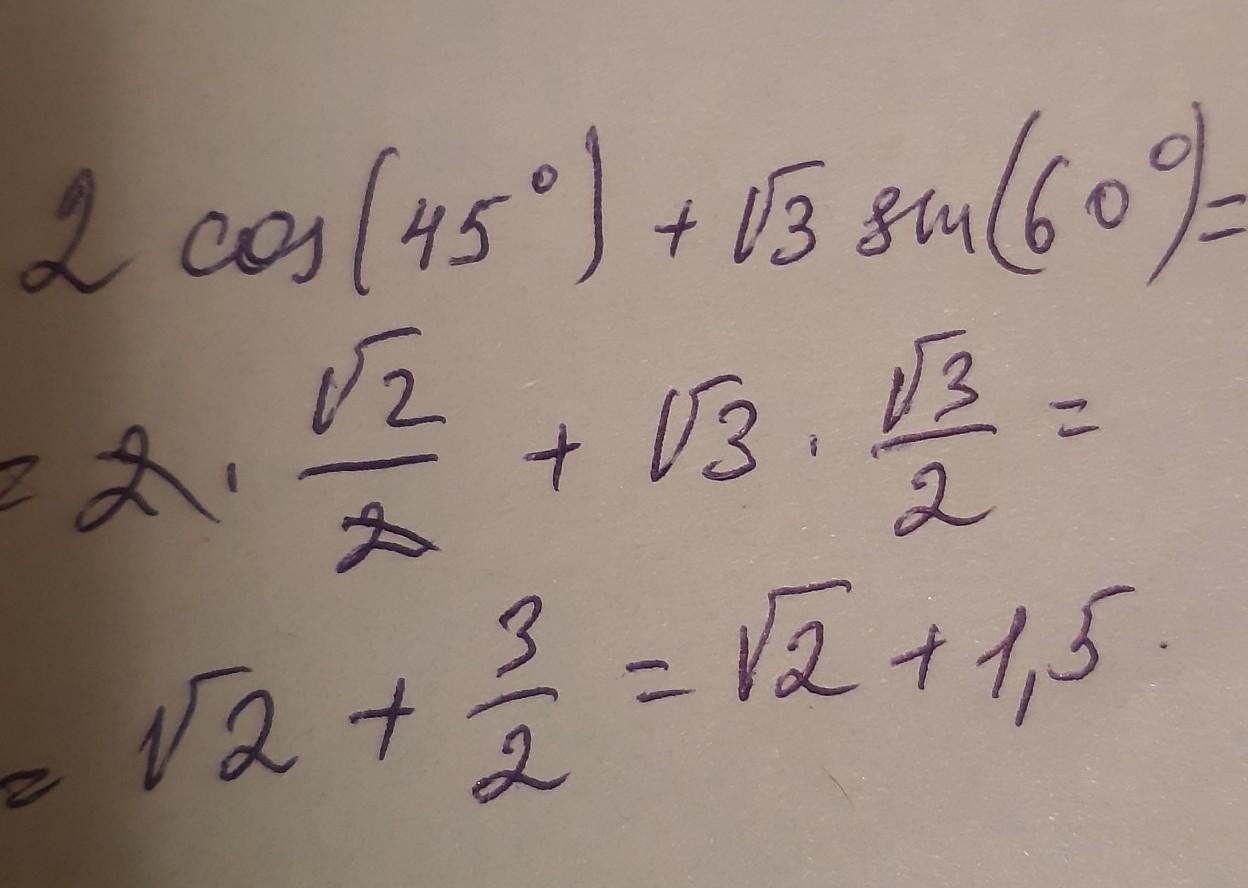 2 cos(45°) + √3 sin(60°) =
= 2 · √2/2 + √3 · √3/2 =
= √2 + 3/2 = √2 + 1,5